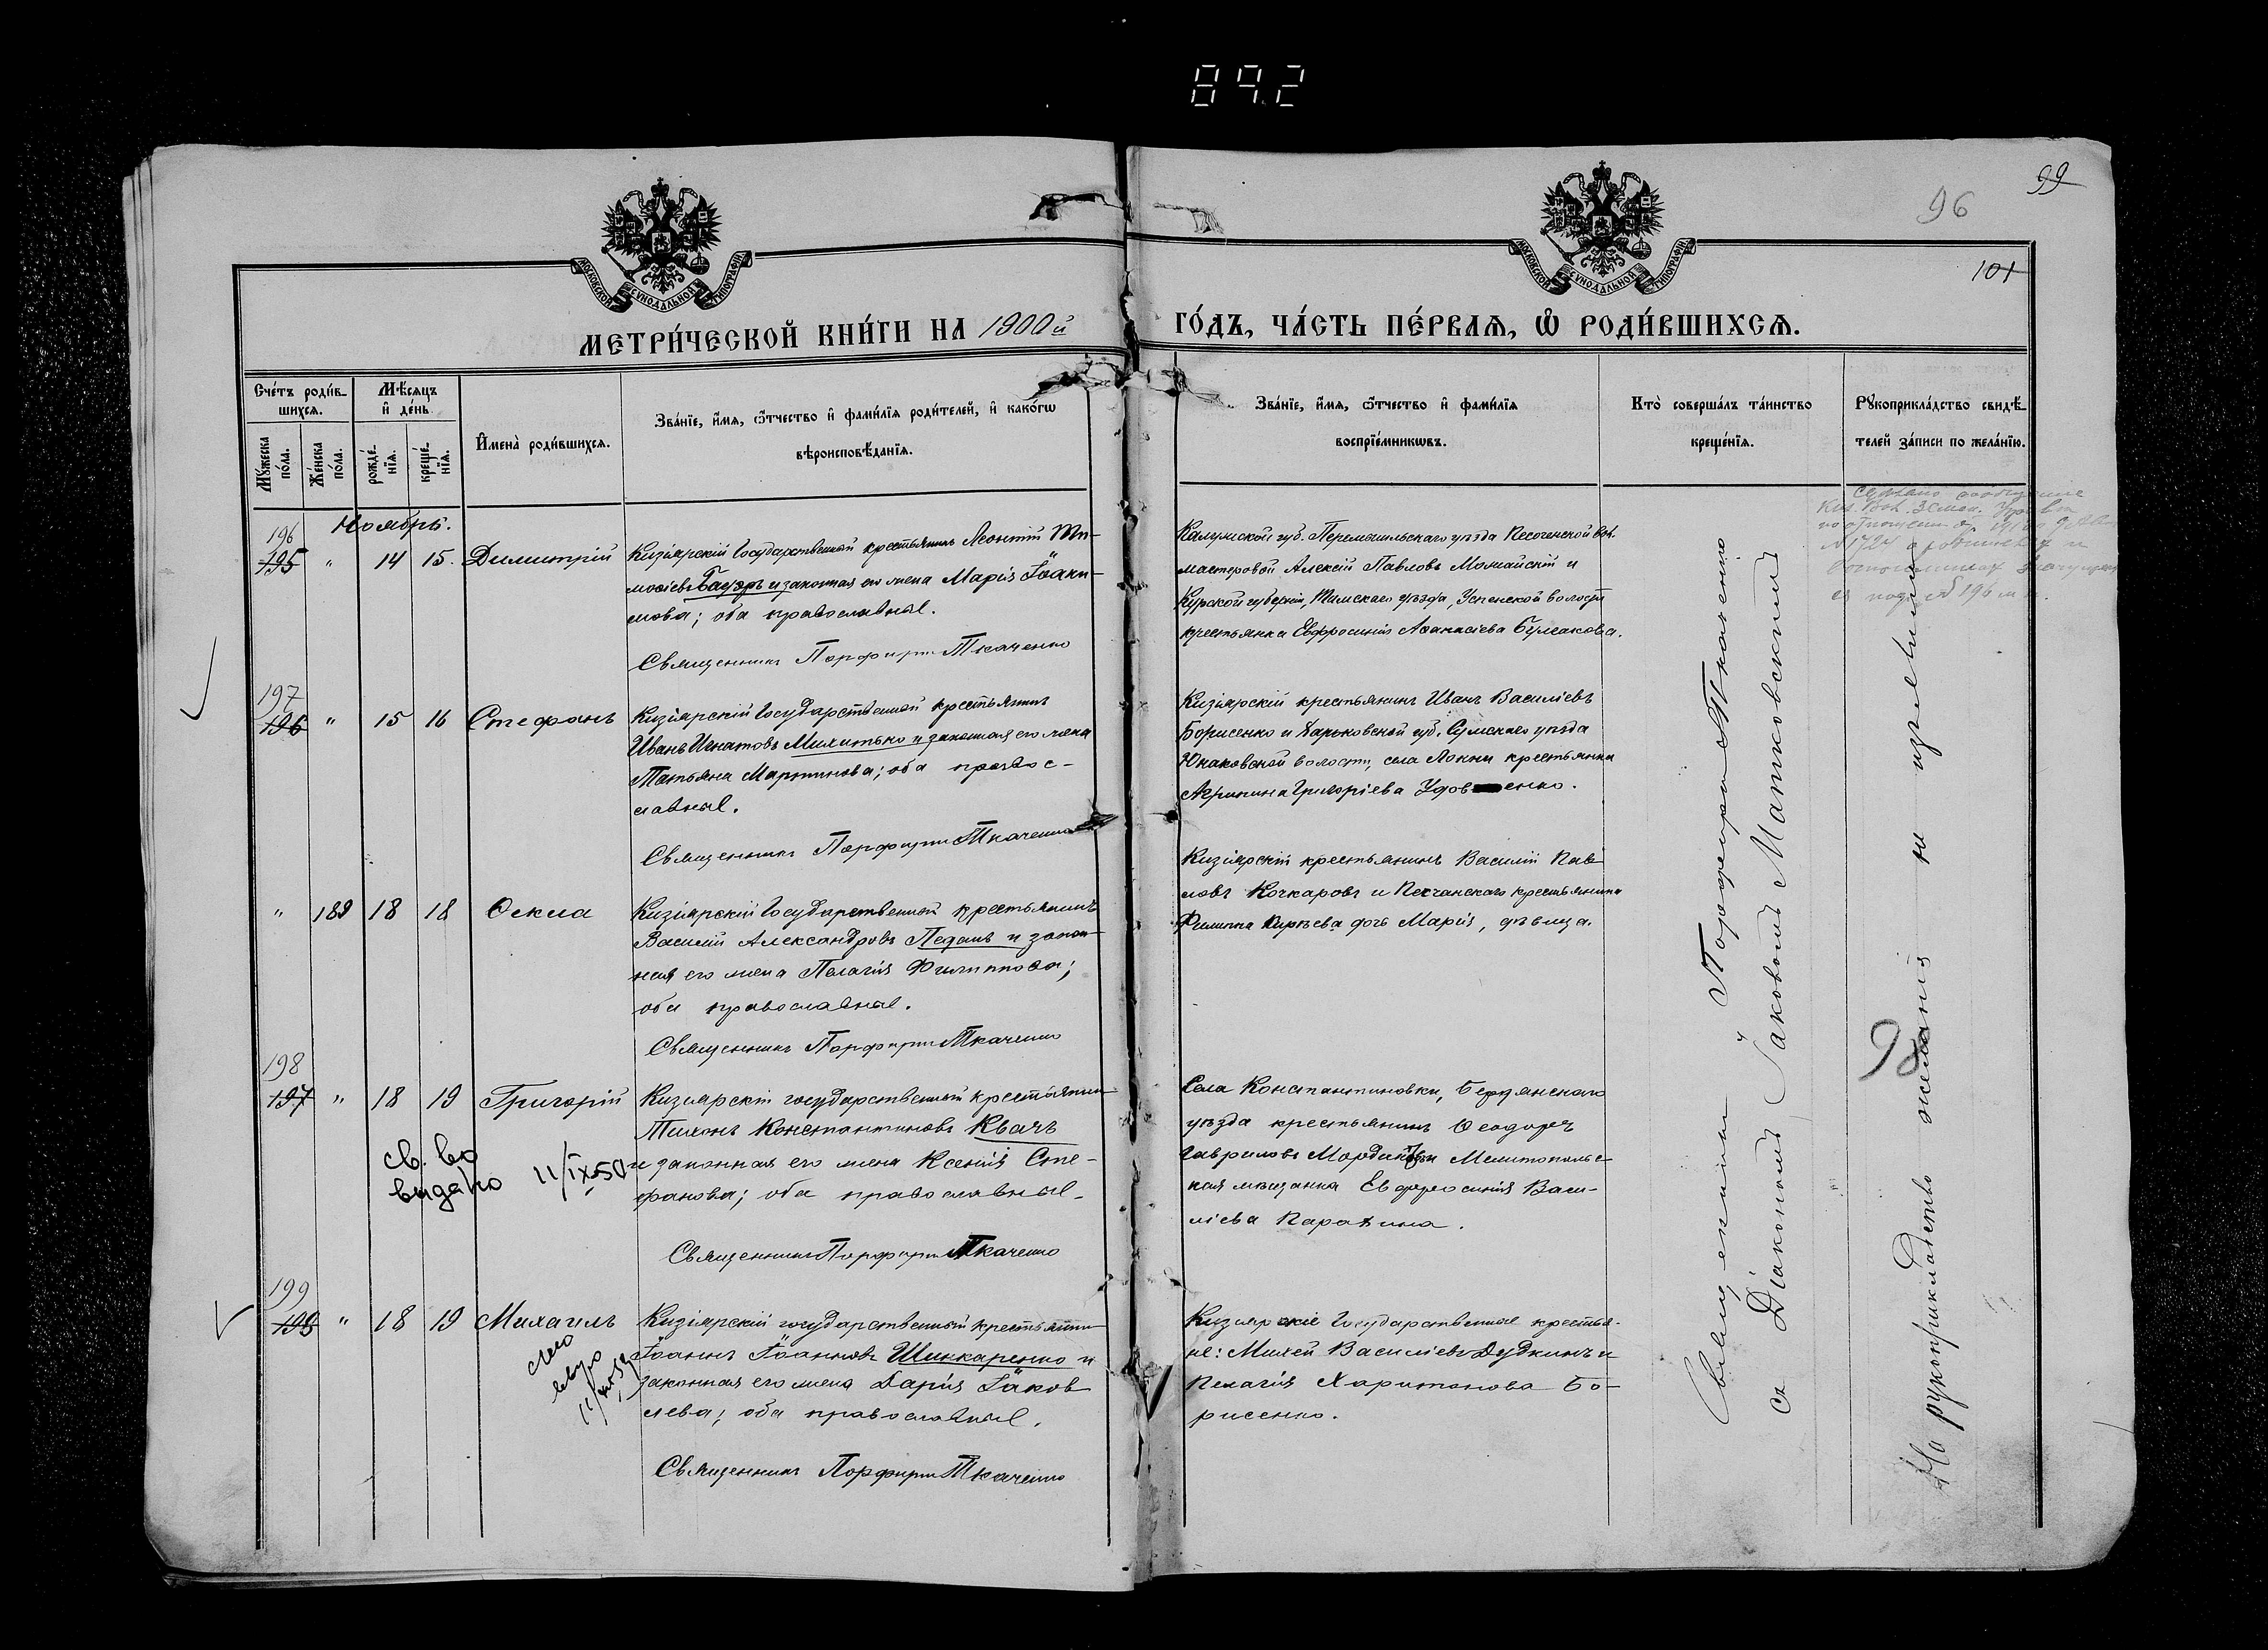 892
99
96
101
МОСКОВСКОЙ СѴНОДАЛЬНОЙ ТИПОГРАФІИ
МОСКОВСКОЙ СѴНОДАЛЬНОЙ ТИПОГРАФІИ
МЕТРИ́ЧЕСКОЙ КНИ́ГИ НА 1900й ГО́ДЪ, ЧА́СТЬ ПЕ́РВАѦ, Ѡ҆ РОДИ́ВШИХСѦ.
Сче́тъ роди́в-
шихсѧ.
Мѣ́сѧцъ
и҆ де́нь
Мꙋ́жеска по́ла.
Же́нска по́ла.
рожде́-
нїѧ.
креще́-
нїѧ.
И҆мена̀ роди́вшихсѧ.
Зва́нїе, и҆́мѧ, ѻ҆́тчество и҆ фами́лїѧ роди́телей, и҆ како́гѡ
вѣроисповѣ́данїѧ.
Зва́нїе, и҆́мѧ, ѻ҆́тчество и҆ фами́лїѧ
воспрїе́мникѡвъ.
Кто̀ соверша́лъ та́инство
креще́нїѧ.
Рꙋкоприкла́дство свидѣ́-
телей за́писи по жела́нїю.
Ноябрь.
196
195 " 14 15. Димитрій
Кизіярскій Государственный крестьянинъ Леонтій Ти-
моѳіевъ Бауэръ и законная его жена Марія Іоаки-
мова; оба православные.
Священникъ Порфирій Ткаченко
Калужской губ. Перемышльскаго уѣзда Песоченской вол.
мастеровой Алексій Павловъ Можайскій и
Курской губерніи, Тимскаго уѣзда, Успенской волости
крестьянка Евфросинія Аѳанасіева Булгакова.
197
196 " 15 16 Стефанъ
Кизіярскій Государственной крестьянинъ
Иванъ Игнатовъ Михитько и законная его жена
Татьяна Мартинова; оба правос-
лавные.
Священникъ Порфирій Ткаченко
Кизіярскій крестьянинъ Иванъ Василіевъ
Борисенко и Харьковской губ. Сумскаго уѣзда
Юнаковской волости, села Локни крестьянка
Агрипина Григоріева Удов енко.
" 189 18 18 Ѳекла
Кизіярскій Государственной крестьянинъ
Василій Александровъ Педанъ и закон-
ная его жена Пелагія Филиппова;
оба православные.
Священникъ Порфирій Ткаченко
Кизіярскій крестьянинъ Василій Пав
ловъ Кочкаровъ и Песчанскаго крестьянина
Филиппа Кирѣева дочь Марія, дѣвица.
198
197 " 18 19 Григорій
Кизіярскій государственный крестьянин
Тихонъ Константиновъ Квачъ
и законная его жена Ксенія Сте-
фанова; оба православные.
Священникъ Порфирій Ткаченко
св. во
видано 11/IX-50
Села Константиновки, Бердянскаго
уѣзда крестьянинъ Ѳеодоръ
Гавриловъ и Мелитопольс-
кая мѣщанка Евфросинія Васи-
ліева Карахина.
199
198 " 18 19 Михаилъ
Кизіярскій государственный крестьянин
Іоаннъ Іоанновъ Шинкаренко и
законная его жена Дарія Іаков
лева; оба православные.
Священникъ Порфирій Ткаченко
Кизіярскіе Государственные крестья-
не: Михей Василіевъ Дудкинъ и
Пелагія Харитонова Бо-
рисенко.
Священникъ Порфирій Ткаченко
съ Діакономъ Іаковомъ Матковскимъ
На рукоприкладство желанія не изъявили
98